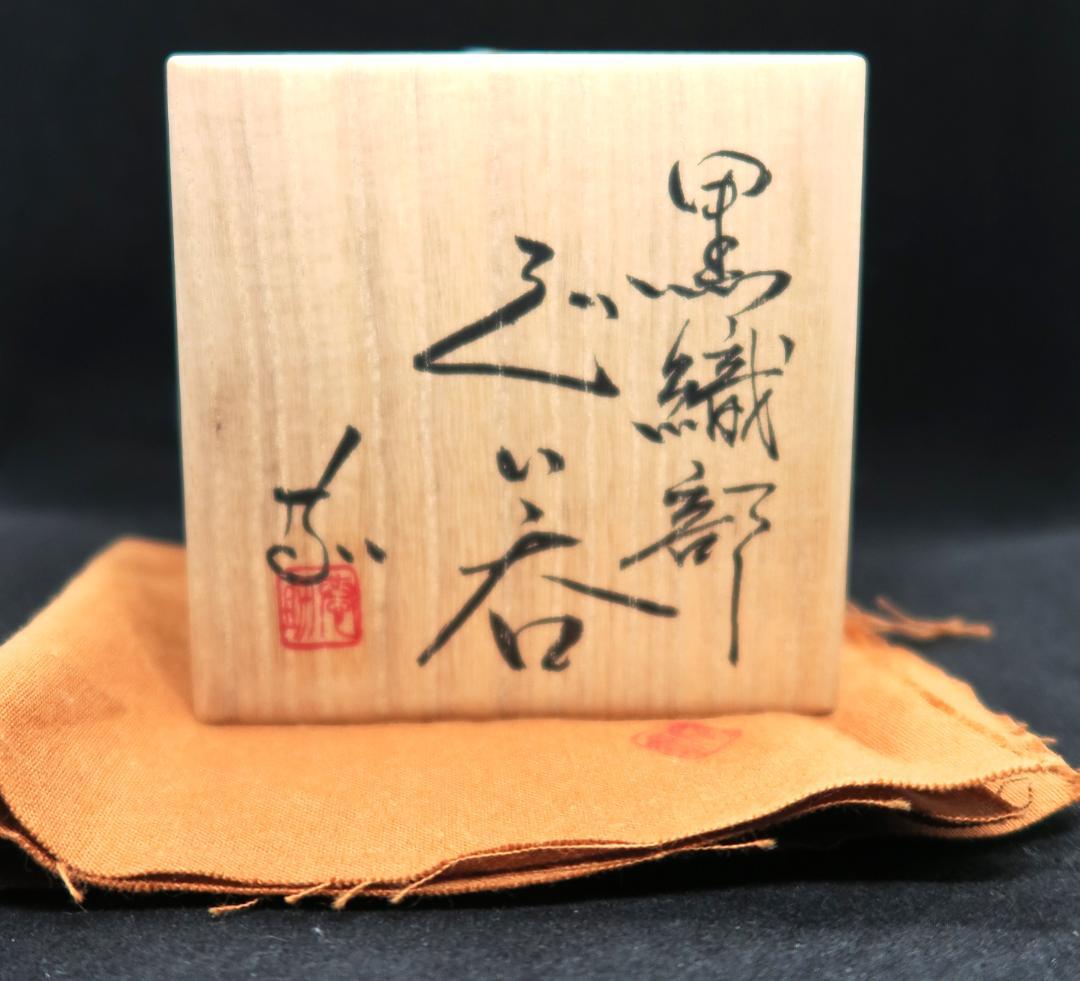 黒織部
ぐい呑